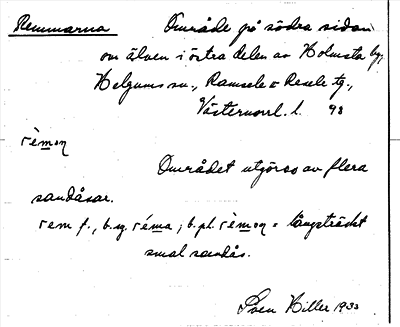 Remmarna Område på södra sidan
om älven i östra delen av Holmsta by,
Helgums sn., Ramsele o Resele tg.,
Västernorrl. l. 93
rèmo̱n
Området utgöres av flera
sandåsar.
rem f., b.sg. réma; b.pl. rèmo̱n = långsträckt
smal sandås.
Sven Hiller 1933